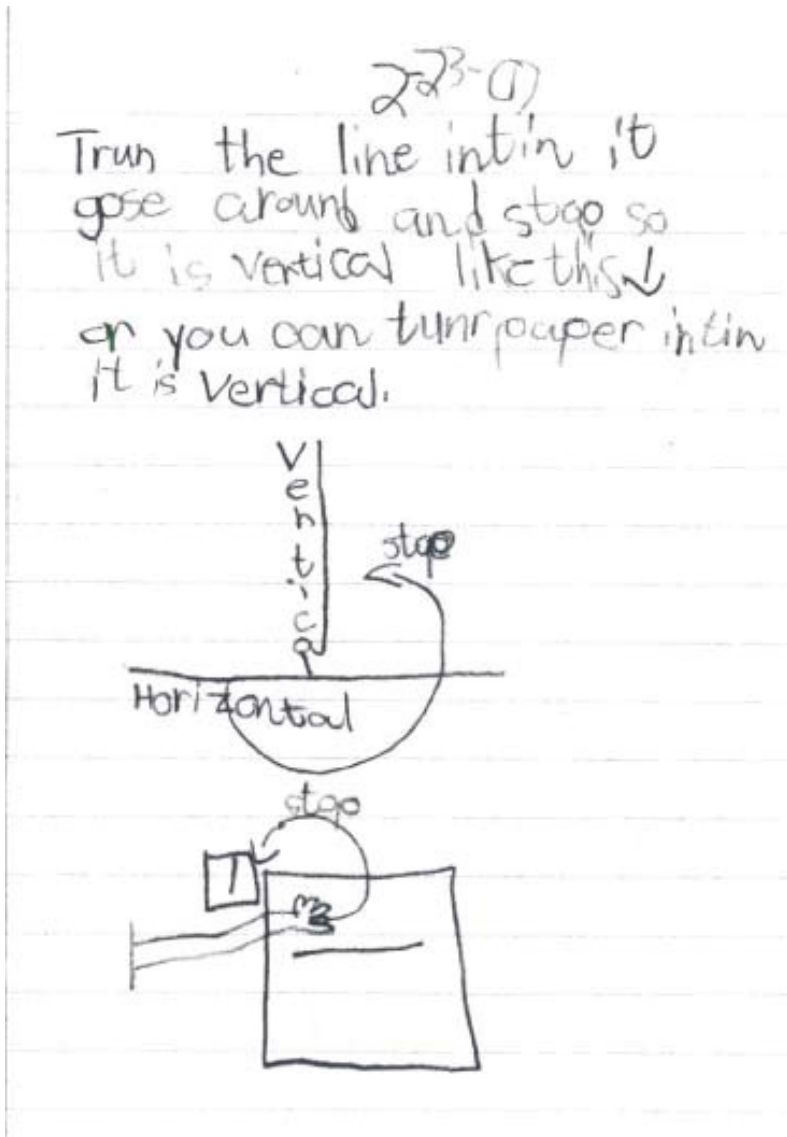 2-23-07
Trun the line intin it
gose around and stop so
it is vertical like this ↓
or you can tunr paper intin
it is vertical.
Vertical
stop
Horizontal
stop